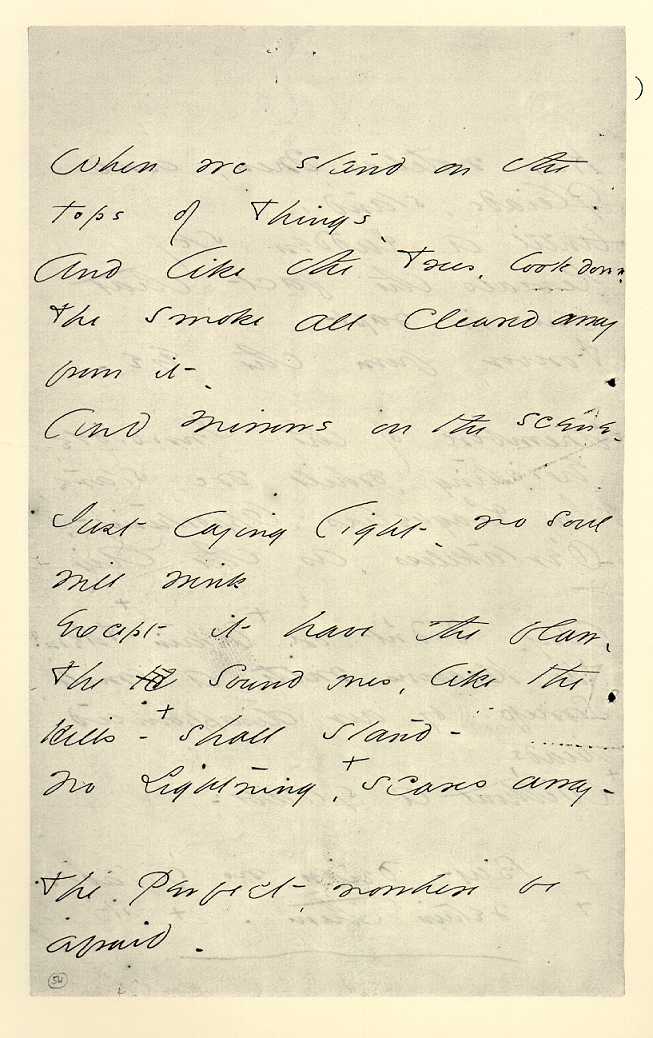 When we stand on the
tops of Things.
And like the Trees, look down,
The smoke all cleared away
from it -
And mirrors on the scene -
Just laying light - no soul
will wink
Except it have the flaw,
The Sound ones, like the
Hills - + shall stand -
No Lightning, + scares away -
The Perfect, nowhere be
afraid -
54